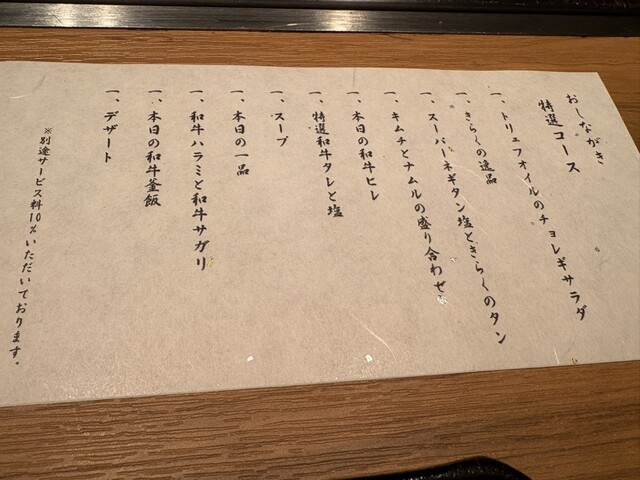 おしながき
特選コース
一、トリュフオイルのチョレギサラダ
一、きらくの逸品
一、スーパーネギタン塩ときらくのタン
一、キムチとナムルの盛り合わせ
一、本日の和牛ヒレ
一、特選和牛タレと塩
一、スープ
一、本日の一品
一、和牛ハラミと和牛サガリ
一、本日の和牛釜飯
一、デザート
※別途サービス料10%いただいております。